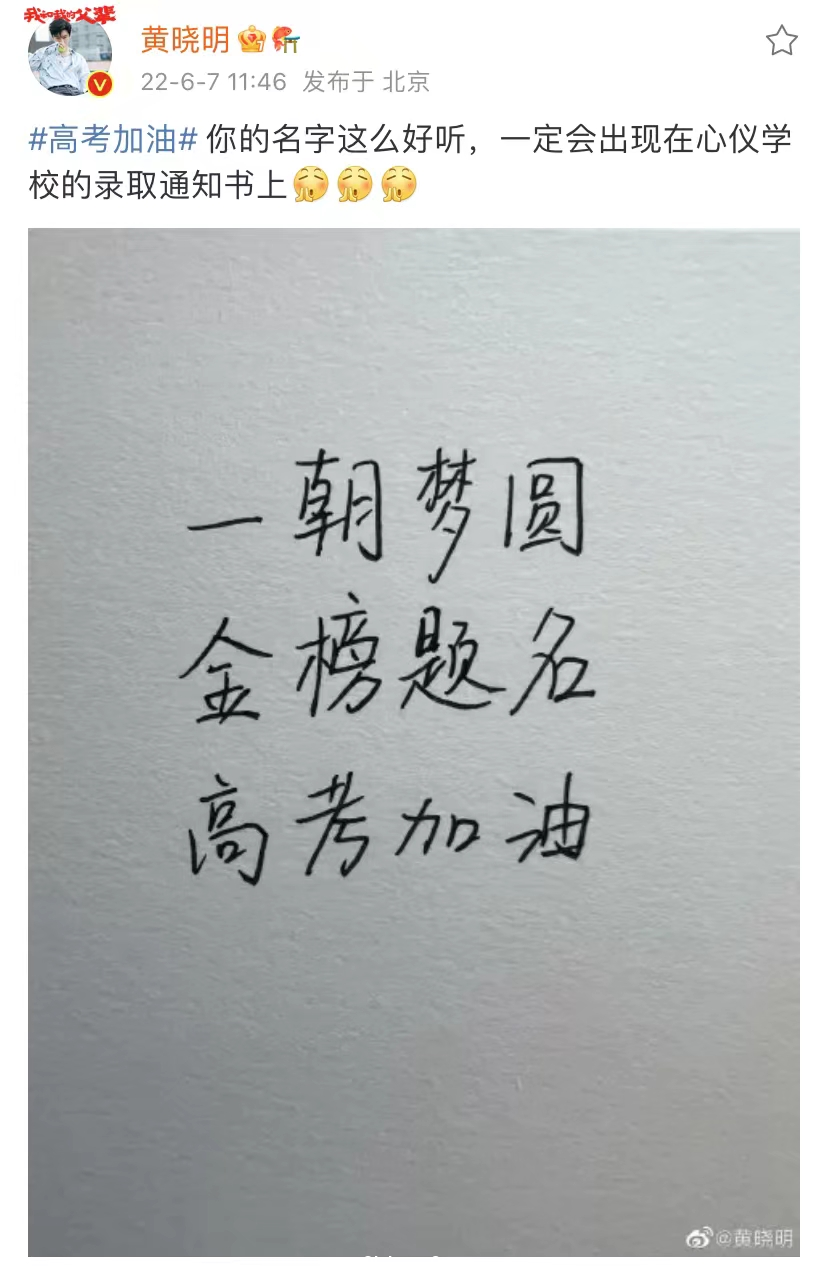 我和我的父辈
黄晓明
22-6-7 11:46 发布于 北京
#高考加油# 你的名字这么好听，一定会出现在心仪学
校的录取通知书上
一朝梦圆
金榜题名
高考加油
@黄晓明